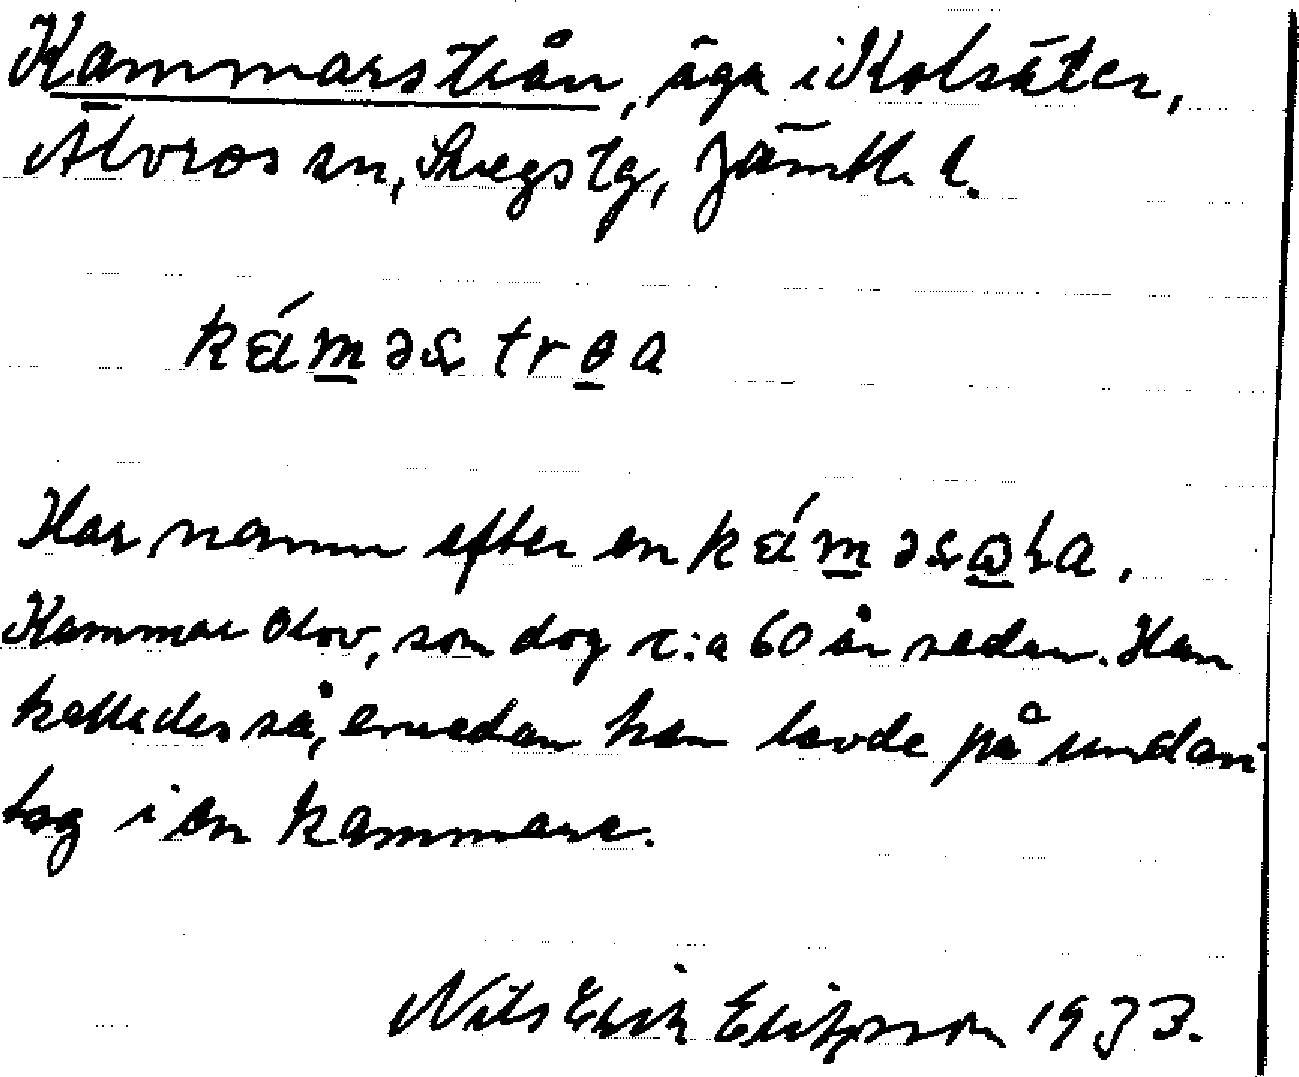 Kammarstrån, äga i Kolsäter,
Älvros sn, Svegs tg, Jämtl. l.
káməs trɵa
Har namn efter en káməsωla,
Kammar Olov, som dog c:a 60 år sedan. Han
kallades så, emedan han lavde på undan
tag i en kammare.
Nils Erik Eriksson 1933.